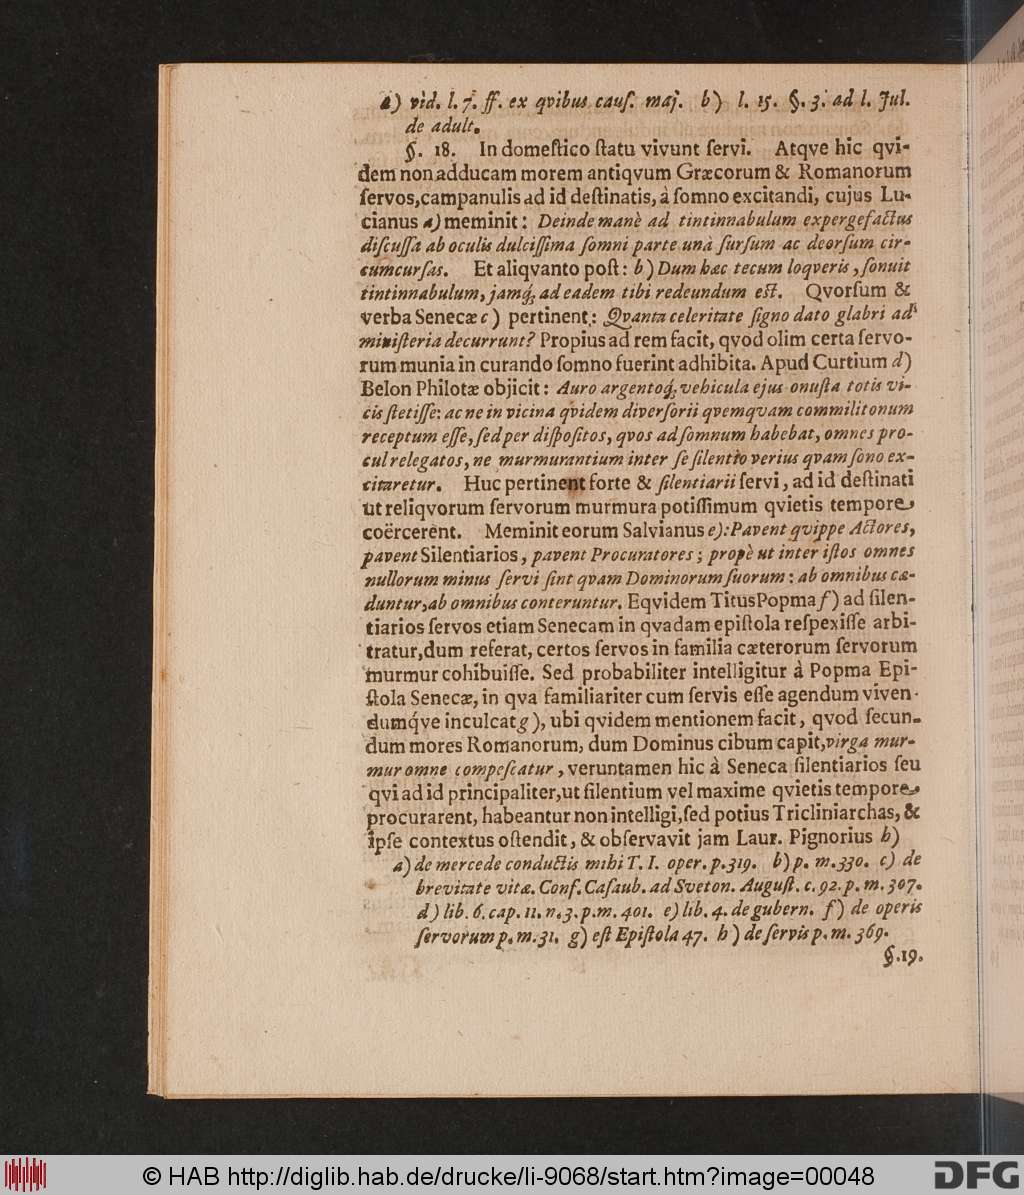 a) vid. l. 7. ff. ex qvibus cauſ. maj. b) l. 15. §. 3. ad l. Jul.
de adult.
§. 18. In domeſtico ſtatu vivunt ſervi. Atqve hic qvi-
dem non adducam morem antiqvum Græcorum & Romanorum
ſervos, campanulis ad id deſtinatis, à ſomno excitandi, cujus Lu-
cianus a) meminit: Deinde manè ad tintinnabulum expergefactus
diſcuſſa ab oculis dulciſſima ſomni parte unà ſurſum ac deorſum cir-
cumcurſas. Et aliqvanto poſt: b) Dum hæc tecum loqveris, ſonuit
tintinnabulum, jamq́; ad eadem tibi redeundum eſt. Qvorſum &
verba Senecæ c) pertinent: Qvanta celeritate ſigno dato glabri ad
miniſteria decurrunt? Propius ad rem facit, qvod olim certa ſervo-
rum munia in curando ſomno fuerint adhibita. Apud Curtium d)
Belon Philotæ objicit: Auro argentoq́; vehicula ejus onuſta totis vi-
cis ſtetiſſe: ac ne in vicina qvidem diverſorii qvemqvam commilitonum
receptum eſſe, ſed per diſpoſitos, qvos ad ſomnum habebat, omnes pro-
cul relegatos, ne murmurantium inter ſe ſilentio verius qvam ſono ex-
citaretur. Huc pertinent forte & ſilentiarii ſervi, ad id deſtinati
ut reliqvorum ſervorum murmura potiſſimum qvietis tempore
coërcerent. Meminit eorum Salvianus e): Pavent qvippe Actores,
pavent Silentiarios, pavent Procuratores; propè ut inter iſtos omnes
nullorum minus ſervi ſint qvam Dominorum ſuorum: ab omnibus cæ-
duntur, ab omnibus conteruntur. Eqvidem Titus Popma f) ad ſilen-
tiarios ſervos etiam Senecam in qvadam epiſtola reſpexiſſe arbi-
tratur, dum referat, certos ſervos in familia cæterorum ſervorum
murmur cohibuiſſe. Sed probabiliter intelligitur à Popma Epi-
ſtola Senecæ, in qva familiariter cum ſervis eſſe agendum viven-
dumq́ve inculcat g), ubi qvidem mentionem facit, qvod ſecun-
dum mores Romanorum, dum Dominus cibum capit, virga mur-
mur omne compeſcatur, veruntamen hic à Seneca ſilentiarios ſeu
qvi ad id principaliter, ut ſilentium vel maxime qvietis tempore
procurarent, habeantur non intelligi, ſed potius Tricliniarchas, &
ipſe contextus oſtendit, & obſervavit jam Laur. Pignorius h)
a) de mercede conductis mihi T. I. oper. p. 319. b) p. m. 330. c) de
brevitate vitæ. Conf. Caſaub. ad Sveton. Auguſt. c. 92. p. m. 307.
d) lib. 6. cap. 11. n. 3. p. m. 401. e) lib. 4. de gubern. f) de operis
ſervorum p. m. 31. g) eſt Epiſtola 47. h) de ſervis p. m. 369.
§. 19.
© HAB http://diglib.hab.de/drucke/li-9068/start.htm?image=00048
DFG